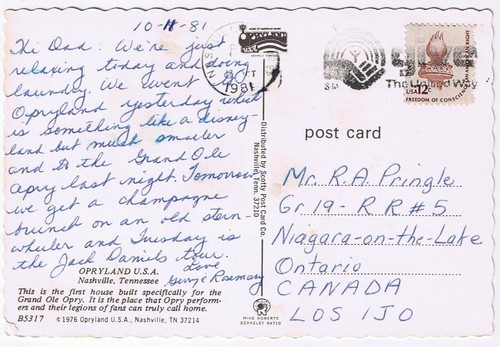 10-11-81
Hi Dad: We're just
relaxing today and doing
laundry. We went to
Opryland yesterday which
is something like a disney-
land but much smaller
and to the Grand Ole
Opry last night. Tomorrow
we get a champagne
brunch on an old stern-
wheeler and Tuesday is
the Jack Daniels tour.
Love
George Rosemary
OPRYLAND U.S.A.
Nashville, Tennessee
This is the first house built specifically for the
Grand Ole Opry. It is the place that Opry perform-
ers and their legions of fans can truly call home.
B5317 © 1976 Opryland U.S.A., Nashville, TN 37214
Distributed by Scotty Post Card Co.
Nashville, Tenn. 37210
MIKE ROBERTS
BERKELEY 94710
OCT
1981
SM
The United Way
USA 12c
FREEDOM OF CONSCIENCE AN AMERICAN RIGHT
post card
Mr. R.A. Pringle
Gr 19 - R R #5
Niagara-on-the-Lake
Ontario
CANADA
LOS 1JO